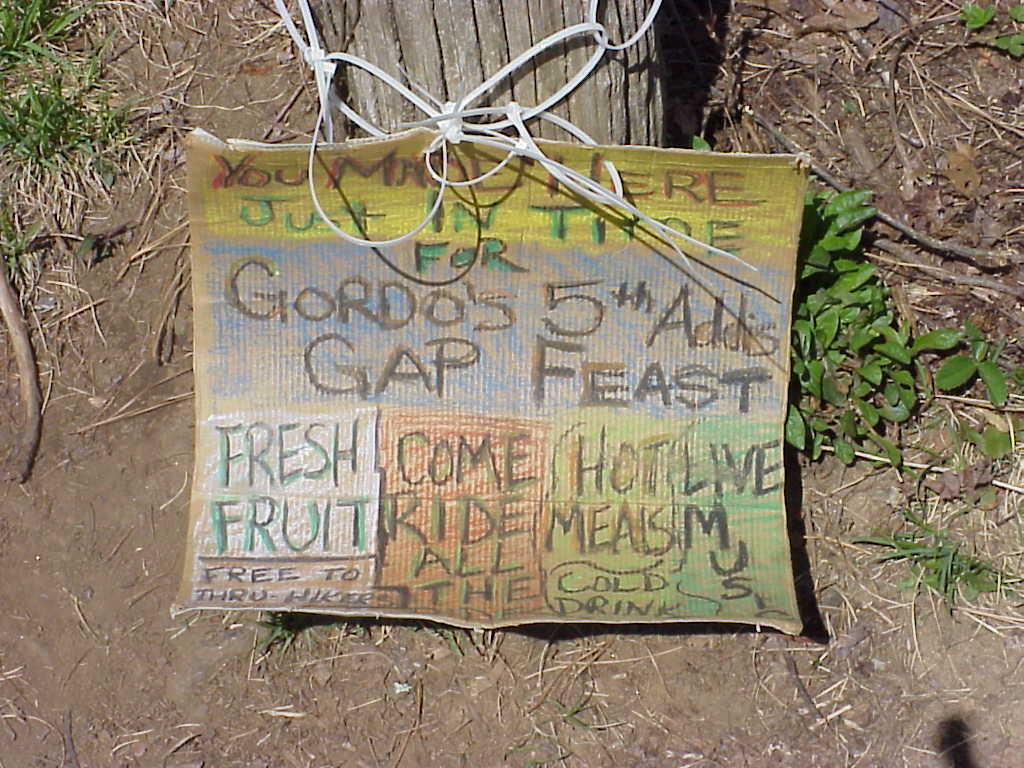 You MADE HERE
Just IN TIME
FOR
GORDO'S 5th Addis
GAP FEAST
FRESH
FRUIT
FREE TO
THRU-HIKE
COME
RIDE
ALL
THE
HOT
MEALS
COLD
DRINK
LIVE
MUSI